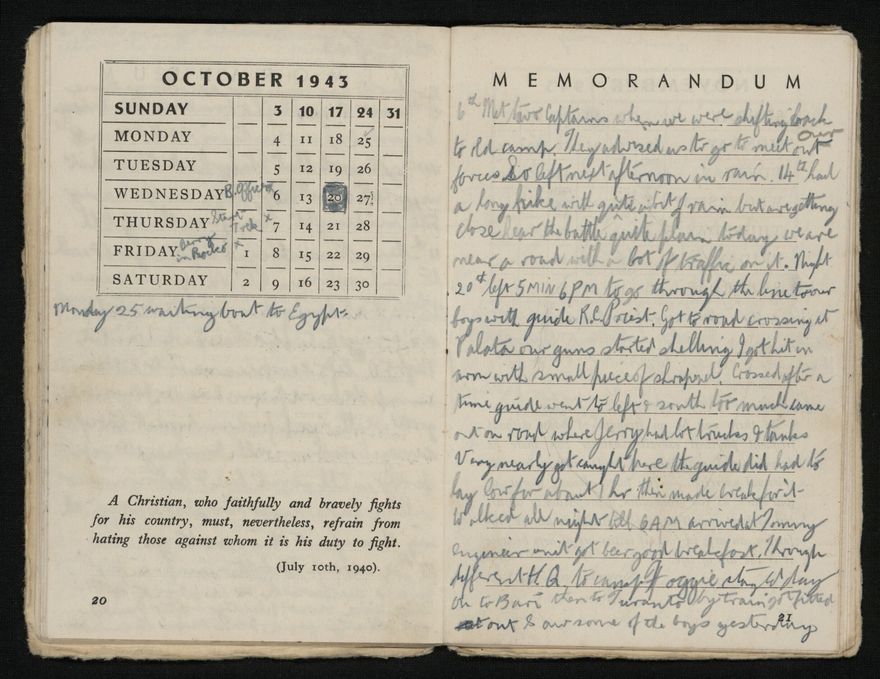 OCTOBER 1943
SUNDAY 3 10 17 24 31
MONDAY 4 11 18 25
TUESDAY 5 12 19 26
WEDNESDAY B. Officers 6 13 20 27
THURSDAY Start Trek x 7 14 21 28
FRIDAY in x 1 8 15 22 29
SATURDAY 2 9 16 23 30
Monday 25 waiting boat to Egypt.
A Christian, who faithfully and bravely fights
for his country, must, nevertheless, refrain from
hating those against whom it is his duty to fight.
(July 10th, 1940).
20
MEMORANDUM
6th Met two Captains when we were shifting back
to old camp. They advised us to go to meet our
forces So left next afternoon in rain. 14th had
a long hike with quite a bit of rain but are getting
close hear the battle quite plain today we are
near a road with a lot of traffic on it. Night
20th left 5 MIN 6 PM to go through the line to our
boys with guide R.C. Priest. Got to road crossing at
Palata our guns started shelling I got hit in
arm with small piece of shrapnel. Crossed after a
time guide went to left & south too much came
out on road where Jerry had lot trucks & tanks
Very nearly got caught here the guide did had to
lay low for about 1 hr then made break for it
Walked all night till 6 AM arrived at Tommy
engineer unit got good breakfast. Through
different H.Q. to camp Foggie stay 1 day
On to Bari then to Turanto by train got fitted
out Saw some of the boys yesterday
21